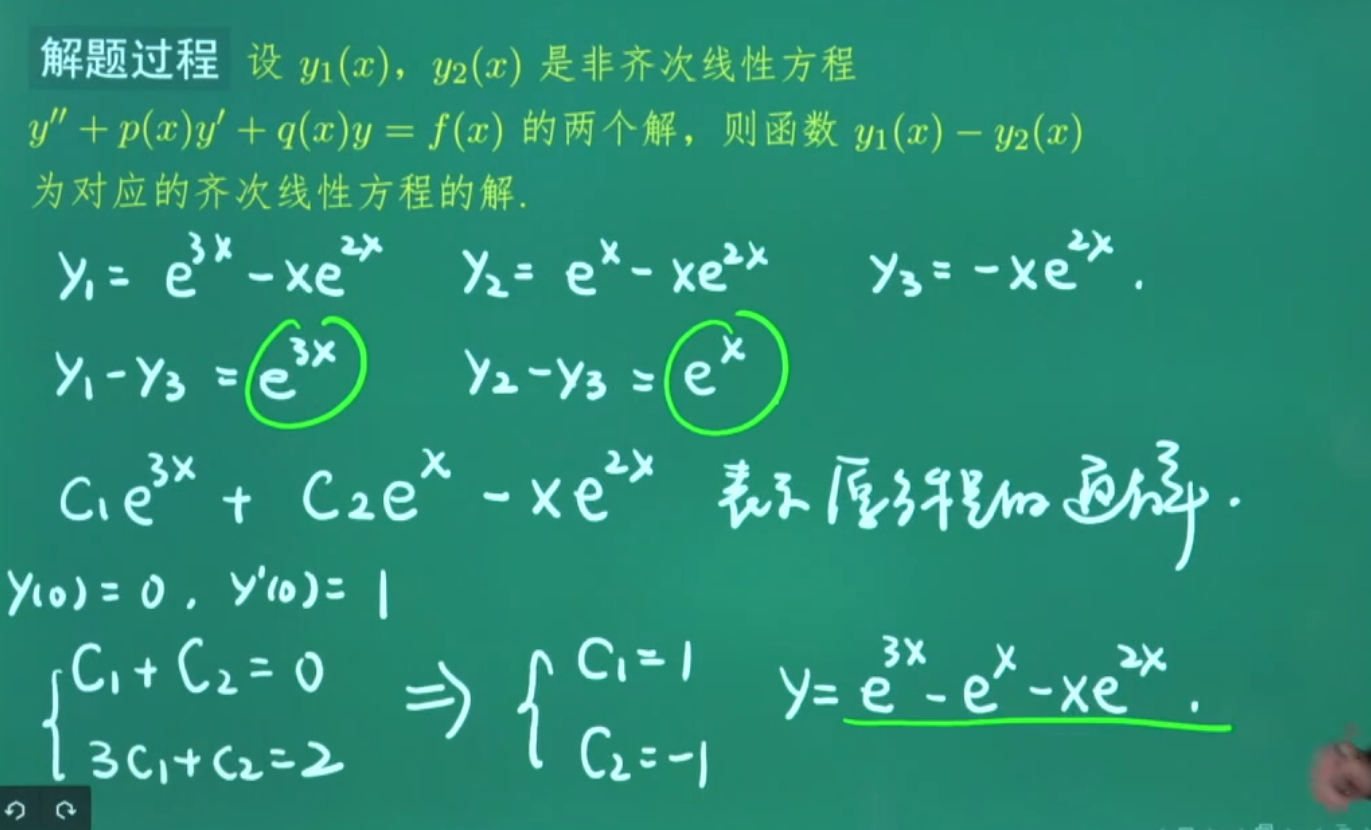 解题过程 设 y₁(x), y₂(x) 是非齐次线性方程
y″ + p(x)y′ + q(x)y = f(x) 的两个解, 则函数 y₁(x) − y₂(x)
为对应的齐次线性方程的解.
y₁ = e^{3x} − xe^{2x} y₂ = e^{x} − xe^{2x} y₃ = −xe^{2x}.
y₁ − y₃ = e^{3x} y₂ − y₃ = e^{x}
C₁e^{3x} + C₂e^{x} − xe^{2x} 表示原方程的通解.
y(0) = 0, y′(0) = 1
{ C₁ + C₂ = 0 ⇒ { C₁ = 1 y = e^{3x} − e^{x} − xe^{2x}.
3C₁ + C₂ = 2 C₂ = −1